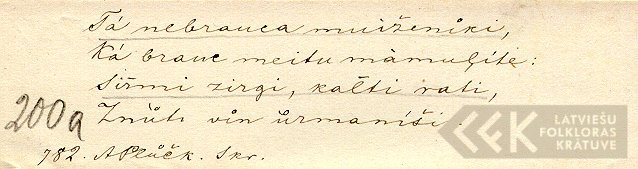 Tá nebrauca muiženíki,
Ká brauc meitu màmuļíte:
Sirmi zirgi, kalti rati,
Znůti vin ůrmaníši.
200a
782. APlůčk. Skr.
LATVIEŠU
FOLKLORAS
KRĀTUVE